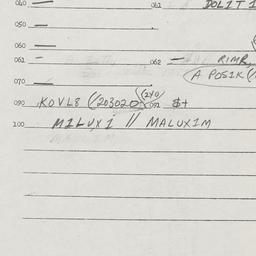 040 — 041 DOLIT I
050 —
060 —
061 - 062 — RIMR,
A POSIK (
070 —
090 KOVL8 (/203020 (2YO/ 092 $+
100 MILUXI // MALUXIM